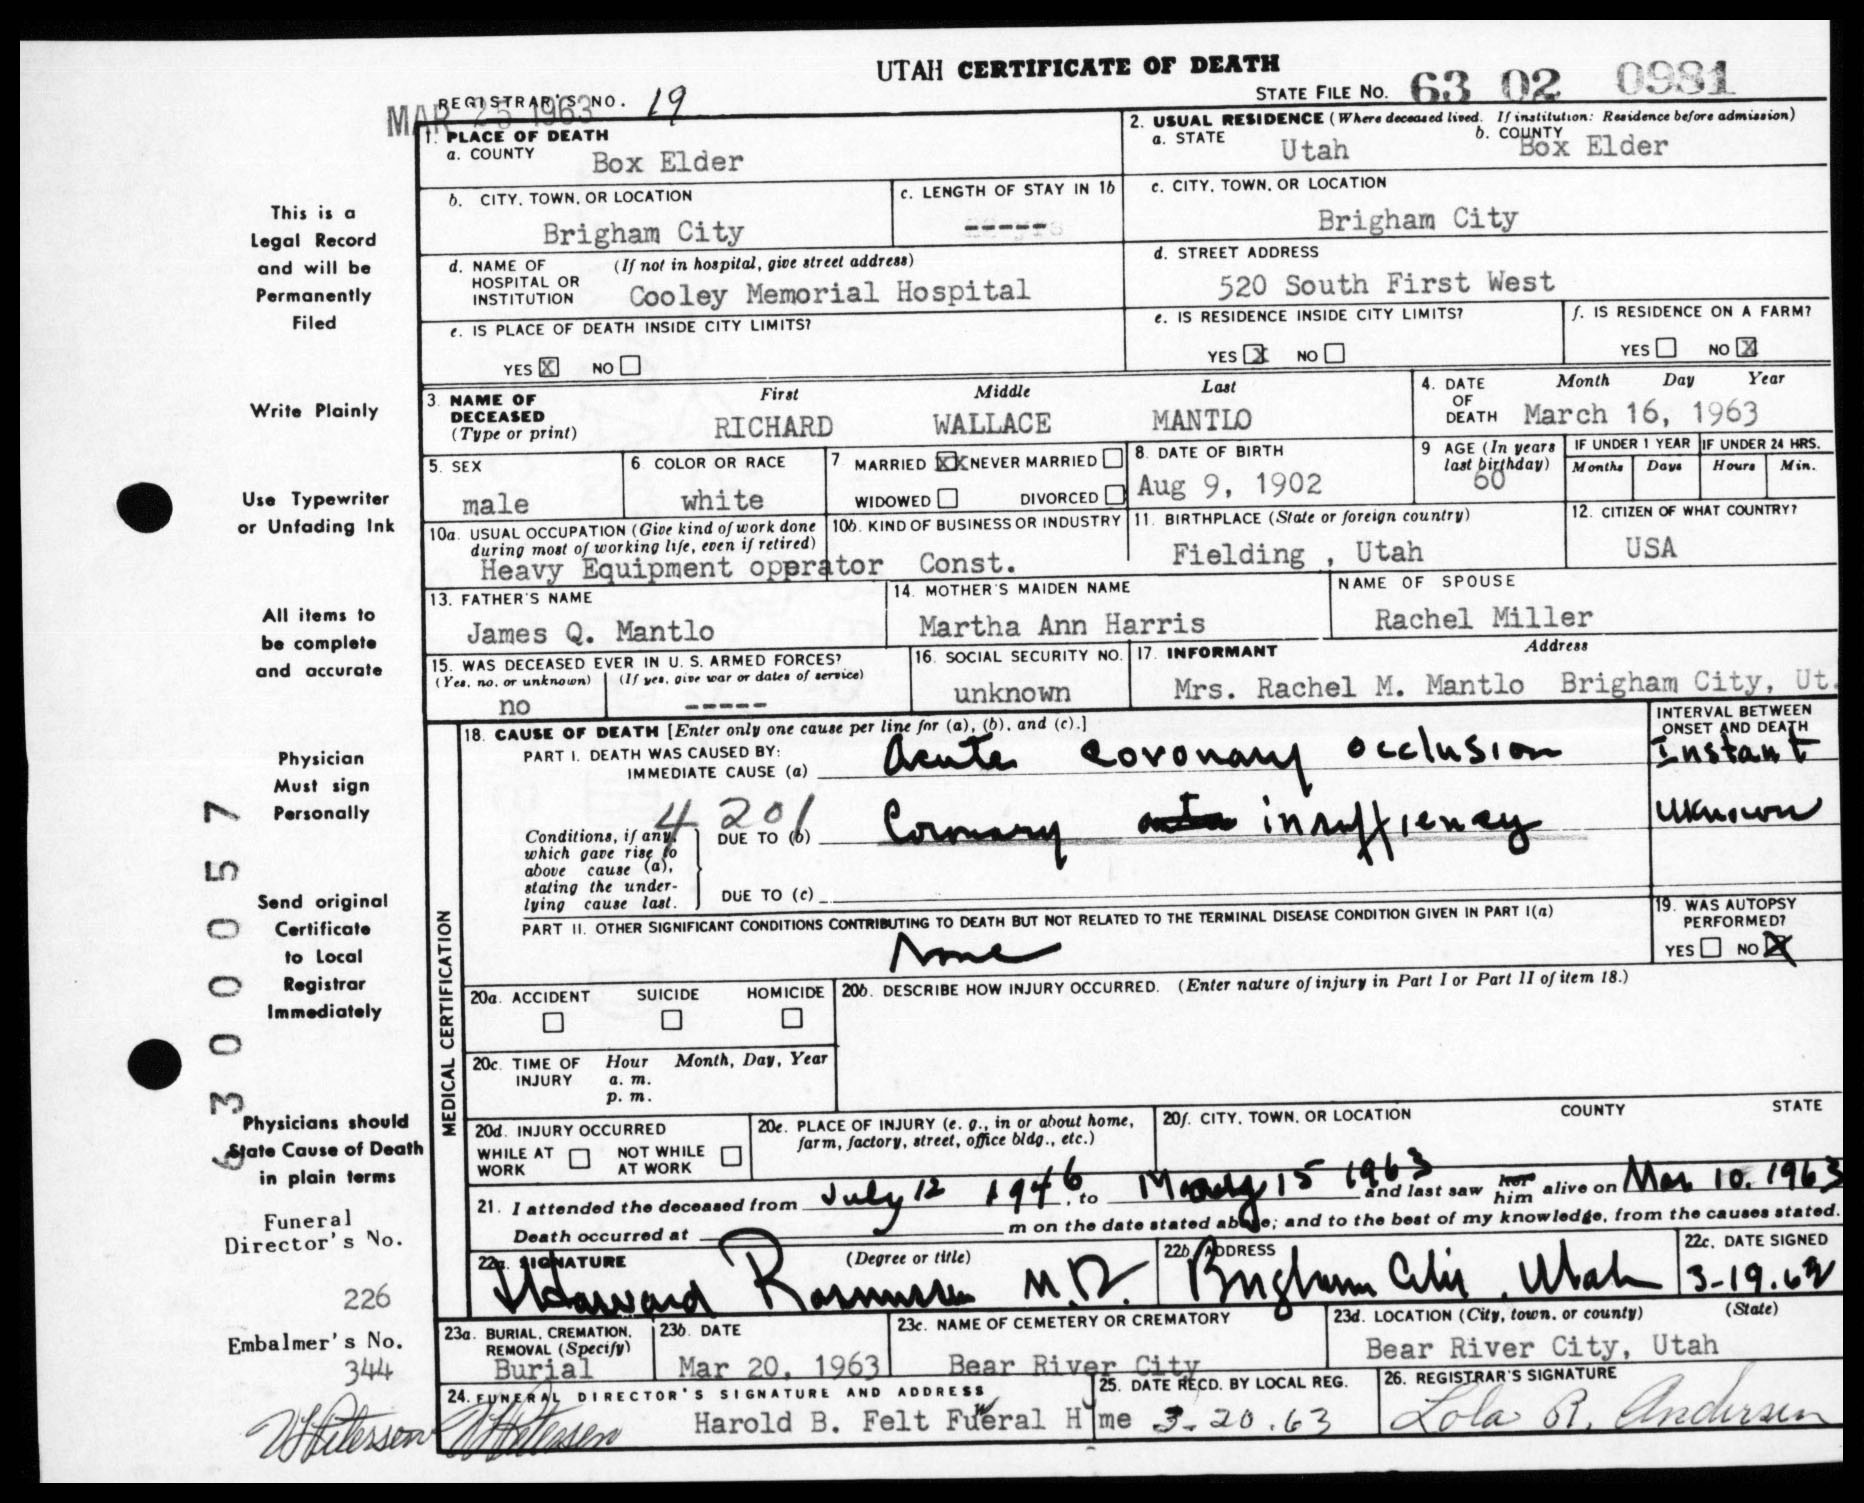 UTAH CERTIFICATE OF DEATH
REGISTRAR'S NO. 19
MAR 25 1963
STATE FILE NO. 63 02 0981
1. PLACE OF DEATH
a. COUNTY Box Elder
2. USUAL RESIDENCE (Where deceased lived. If institution: Residence before admission)
a. STATE Utah b. COUNTY Box Elder
b. CITY, TOWN, OR LOCATION Brigham City
c. LENGTH OF STAY IN 1b -----
c. CITY, TOWN, OR LOCATION Brigham City
d. NAME OF HOSPITAL OR INSTITUTION (If not in hospital, give street address) Cooley Memorial Hospital
d. STREET ADDRESS 520 South First West
e. IS PLACE OF DEATH INSIDE CITY LIMITS?
YES X NO
e. IS RESIDENCE INSIDE CITY LIMITS?
YES X NO
f. IS RESIDENCE ON A FARM?
YES NO X
3. NAME OF DECEASED (Type or print)
First Middle Last
RICHARD WALLACE MANTLO
4. DATE OF DEATH Month Day Year
March 16, 1963
5. SEX male
6. COLOR OR RACE white
7 MARRIED XX NEVER MARRIED
WIDOWED DIVORCED
8. DATE OF BIRTH Aug 9, 1902
9 AGE (In years last birthday) 60
IF UNDER 1 YEAR Months Days
IF UNDER 24 HRS. Hours Min.
10a. USUAL OCCUPATION (Give kind of work done during most of working life, even if retired)
Heavy Equipment operator
10b. KIND OF BUSINESS OR INDUSTRY Const.
11. BIRTHPLACE (State or foreign country) Fielding , Utah
12. CITIZEN OF WHAT COUNTRY? USA
13. FATHER'S NAME James Q. Mantlo
14. MOTHER'S MAIDEN NAME Martha Ann Harris
NAME OF SPOUSE Rachel Miller
15. WAS DECEASED EVER IN U. S. ARMED FORCES?
(Yes, no, or unknown) (If yes, give war or dates of service)
no -----
16. SOCIAL SECURITY NO. unknown
17. INFORMANT Address
Mrs. Rachel M. Mantlo Brigham City, Ut.
MEDICAL CERTIFICATION
18. CAUSE OF DEATH [Enter only one cause per line for (a), (b), and (c).]
INTERVAL BETWEEN ONSET AND DEATH
PART I. DEATH WAS CAUSED BY:
IMMEDIATE CAUSE (a) Acute coronary occlusion Instant
4201
Conditions, if any, which gave rise to above cause (a), stating the underlying cause last.
DUE TO (b) Coronary insuffiency Uknown
DUE TO (c)
PART II. OTHER SIGNIFICANT CONDITIONS CONTRIBUTING TO DEATH BUT NOT RELATED TO THE TERMINAL DISEASE CONDITION GIVEN IN PART I(a)
None
19. WAS AUTOPSY PERFORMED?
YES NO X
20a. ACCIDENT SUICIDE HOMICIDE
20b. DESCRIBE HOW INJURY OCCURRED. (Enter nature of injury in Part I or Part II of item 18.)
20c. TIME OF INJURY Hour Month, Day, Year
a. m.
p. m.
20d. INJURY OCCURRED
WHILE AT WORK NOT WHILE AT WORK
20e. PLACE OF INJURY (e. g., in or about home, farm, factory, street, office bldg., etc.)
20f. CITY, TOWN, OR LOCATION COUNTY STATE
21. I attended the deceased from July 12 1946, to 15 1963 and last saw her him alive on Mar 10. 1963
Death occurred at m on the date stated above; and to the best of my knowledge, from the causes stated.
22a. SIGNATURE (Degree or title)
Howard Rasmussen M.D.
22b. ADDRESS Brigham City, Utah
22c. DATE SIGNED 3-19.63
23a. BURIAL, CREMATION, REMOVAL (Specify) Burial
23b. DATE Mar 20, 1963
23c. NAME OF CEMETERY OR CREMATORY Bear River City
23d. LOCATION (City, town, or county) (State)
Bear River City, Utah
24. FUNERAL DIRECTOR'S SIGNATURE AND ADDRESS
Harold B. Felt Funeral Home
25. DATE RECD. BY LOCAL REG. 3-20.63
26. REGISTRAR'S SIGNATURE
Lola R. Andersen
This is a
Legal Record
and will be
Permanently
Filed
Write Plainly
Use Typewriter
or Unfading Ink
All items to
be complete
and accurate
Physician
Must sign
Personally
Send original
Certificate
to Local
Registrar
Immediately
Physicians should
State Cause of Death
in plain terms
6300057
Funeral
Director's No.
226
Embalmer's No.
344
W Petersen W Petersen